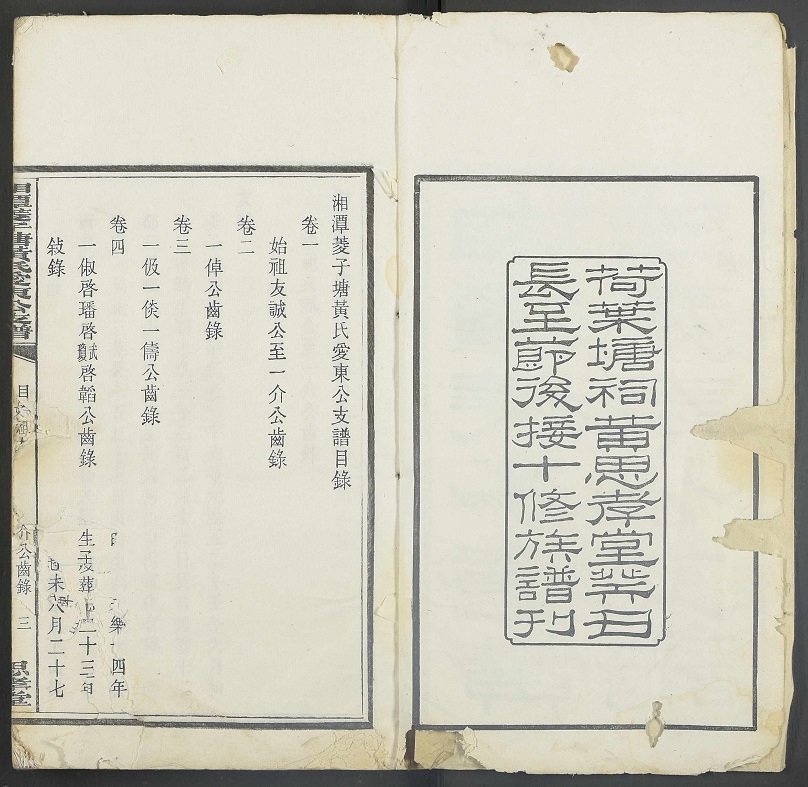 荷葉塘祠黃思孝堂癸丑
長至節後接十修族譜刊
湘潭菱子塘黃氏愛東公支譜目錄
卷一
始祖友誠公至一介公齒錄
卷二
一倬公齒錄
卷三
一伋一倓一儔公齒錄
卷四
一俶啓璠啓 啓韜公齒錄
生 葬 二十三年
敍錄
未八月二十七
樂 四年
湘潭菱子塘黃氏愛東公支譜
目
介公齒錄
三
思孝堂